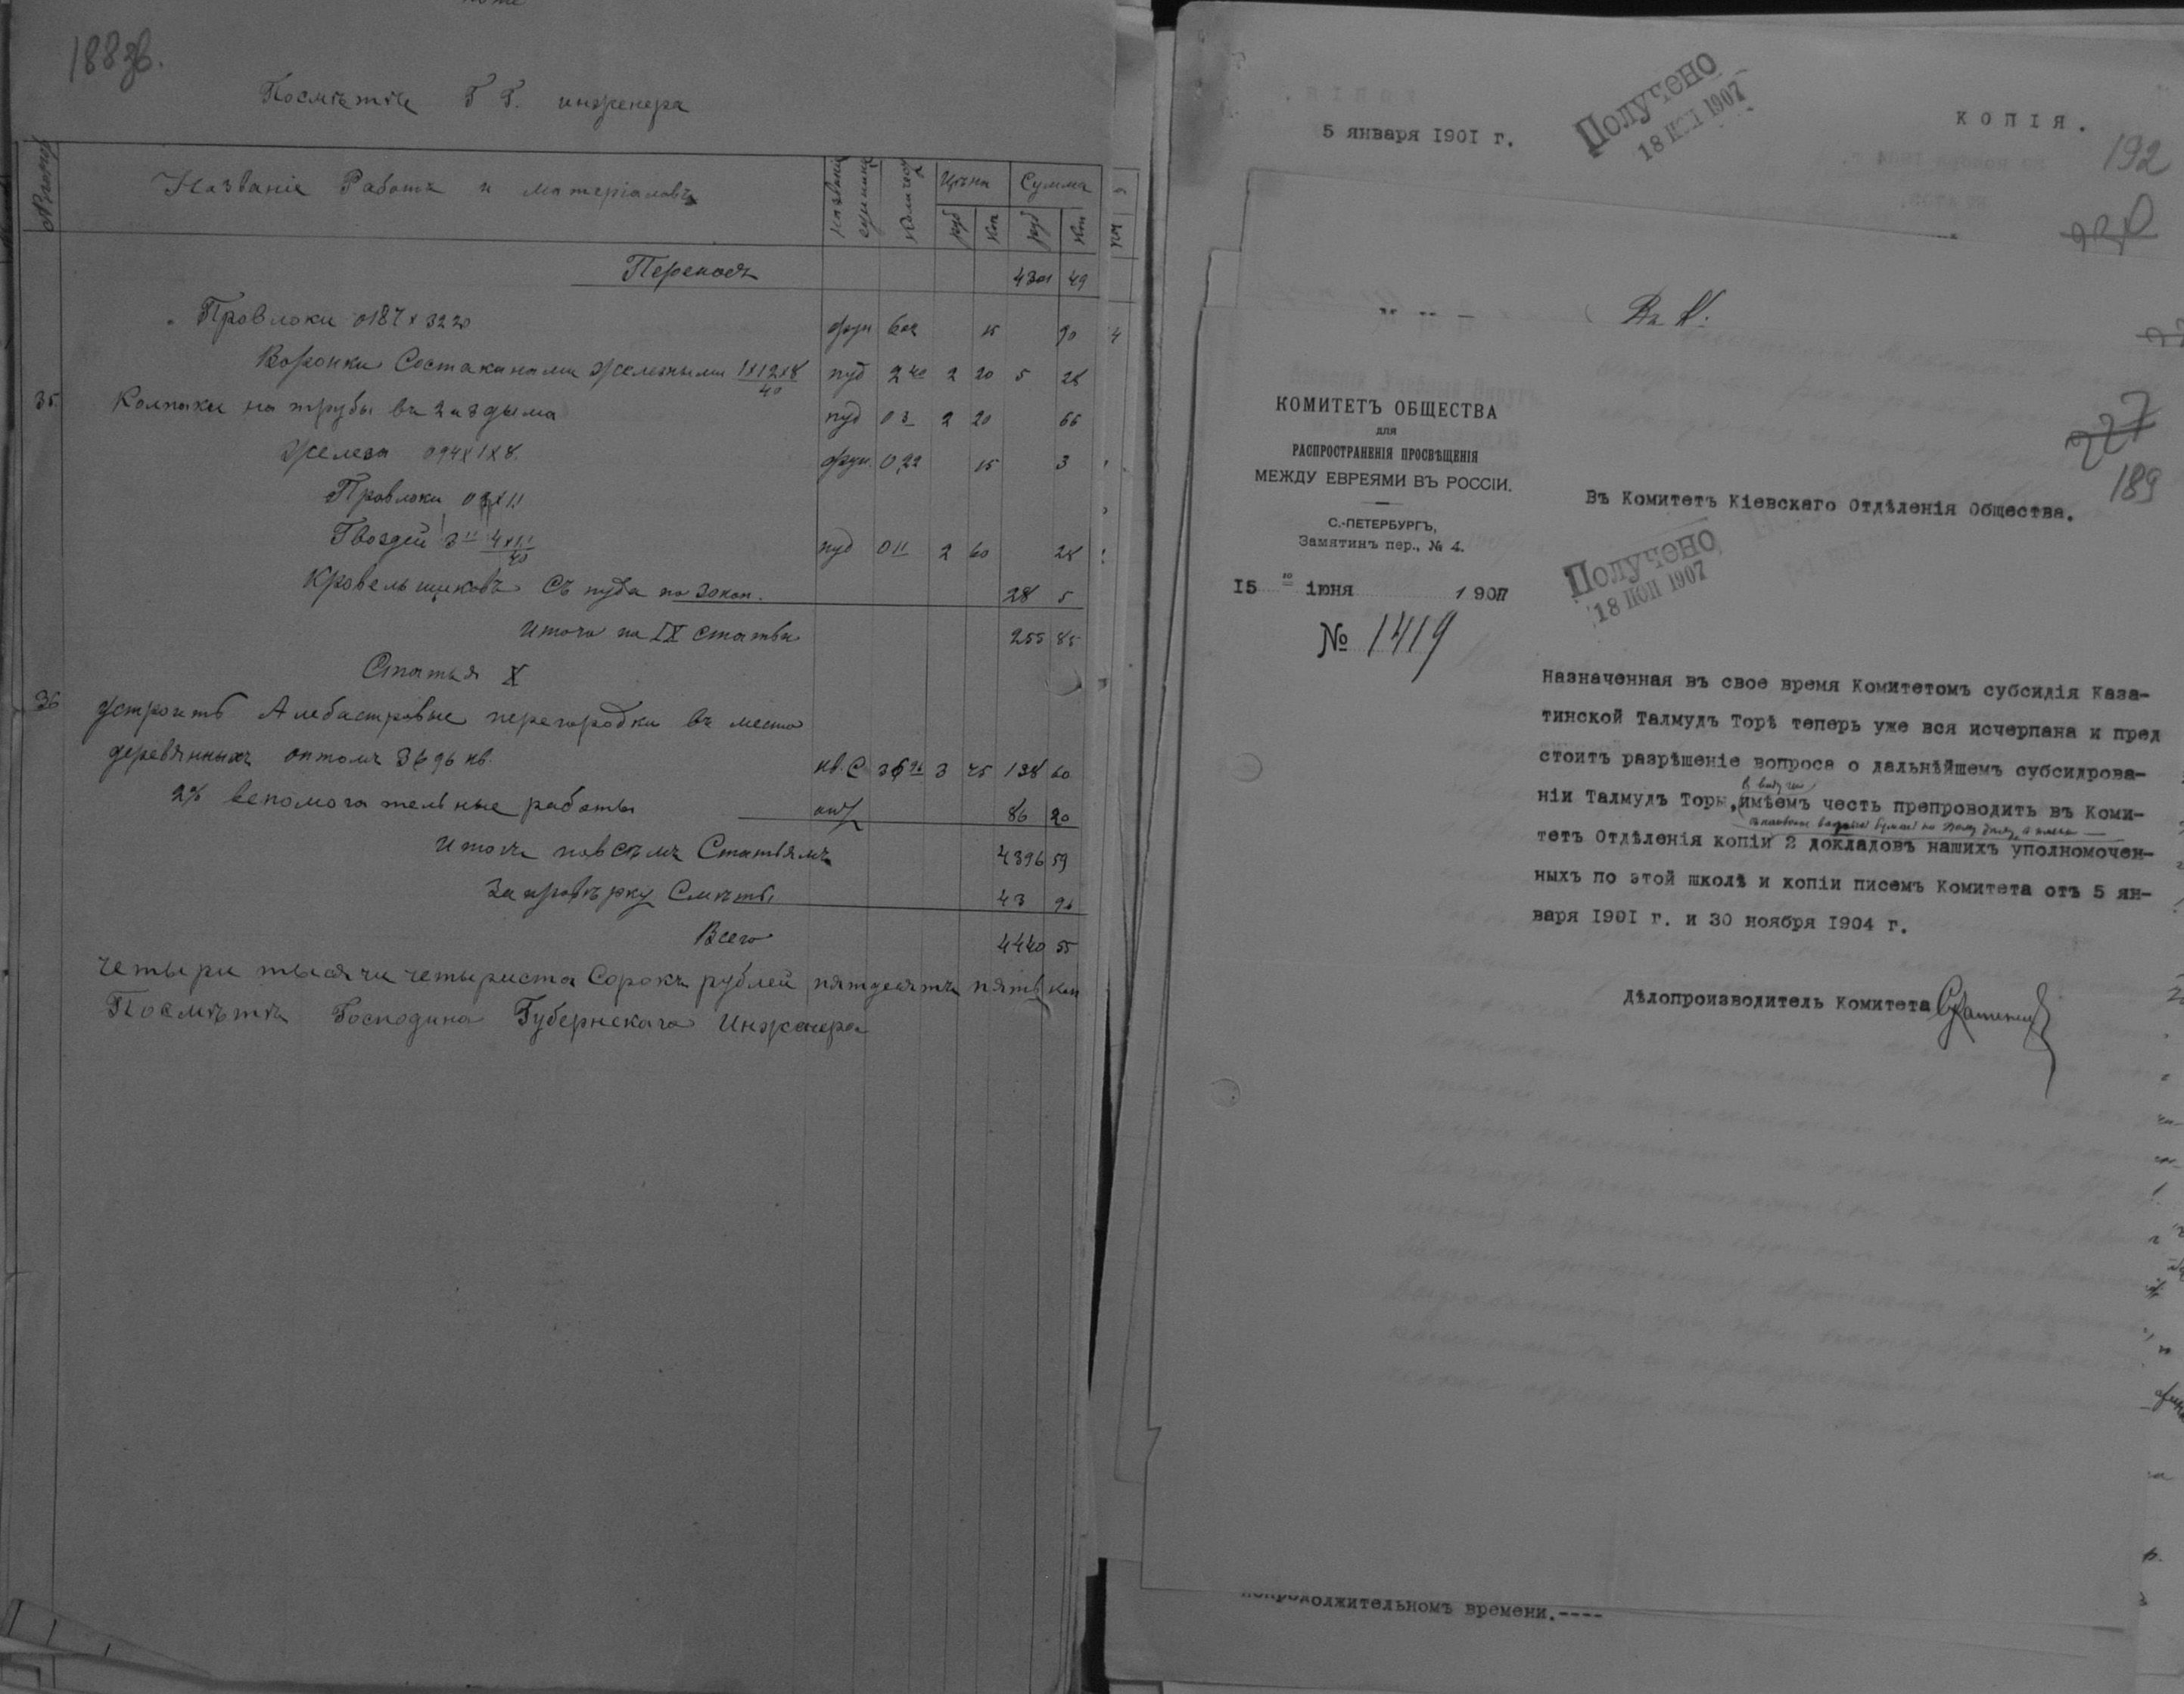 188 об.
Посмѣтѣ Г. Г. инженера
Названіе Работъ и матеріаловъ
названіе единицы
Количес
Цѣна Сумма
руб Коп руб Коп
Переносъ 4301 49
Проволоки 0187 х 32 20 фун 602 15 90
Воронки Состаканами железными 1х12х8/40 пуд 2 40 2 20 5 28
35 Колпаки на трубы въ 2 и 3 дыма пуд 03 2 20 66
Железа 094х1х8 фун. 0,22 15 3
Проволоки
Гвоздей пуд 011 2 60 28
Кровельщиковъ Съ пуда по 30 коп. 28 5
Итого по IX статьи 255 85
Статья X
36 Устроить Алебастровые перегородки въ место
деревянныхъ оптомъ 3696 кв. кв. С 36 96 3 75 138 60
2% вспомогательные работы 86 20
Итогъ повсѣмъ Статьямъ 4396 59
За провѣрку Смѣты 43 96
Всего 4440 55
Четыри тысячи четыриста Сорокъ рублей пятдесятъ пять коп
Посмѣтѣ Господина Губернскаго Инженера
КОПІЯ.
5 января 1901 г.
Получено
18 ІЮН 1907
192
227
189
КОМИТЕТЪ ОБЩЕСТВА
для
РАСПРОСТРАНЕНІЯ ПРОСВѢЩЕНІЯ
МЕЖДУ ЕВРЕЯМИ ВЪ РОССІИ.
С.-ПЕТЕРБУРГЪ,
Замятинъ пер., № 4.
15 го іюня 1907
№ 1419
Въ Комитетъ Кіевскаго Отдѣленія Общества.
Получено
18 ІЮН 1907
Назначенная въ свое время Комитетомъ субсидія Каза-
тинской Талмудъ Торѣ теперь уже вся исчерпана и пред
стоитъ разрѣшеніе вопроса о дальнѣйшемъ субсидрова-
въ виду чего
ніи Талмудъ Торы, имѣемъ честь препроводить въ Коми-
тетъ Отдѣленія копіи 2 докладовъ нашихъ уполномочен-
ныхъ по этой школѣ и копіи писемъ Комитета отъ 5 ян-
варя 1901 г. и 30 ноября 1904 г.
Дѣлопроизводитель Комитета
непродолжительномъ времени.----